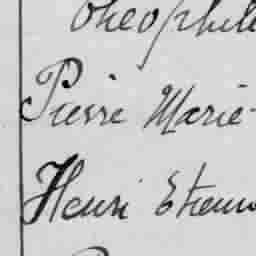 Théophile
Pierre Marie-
Henri Etienn